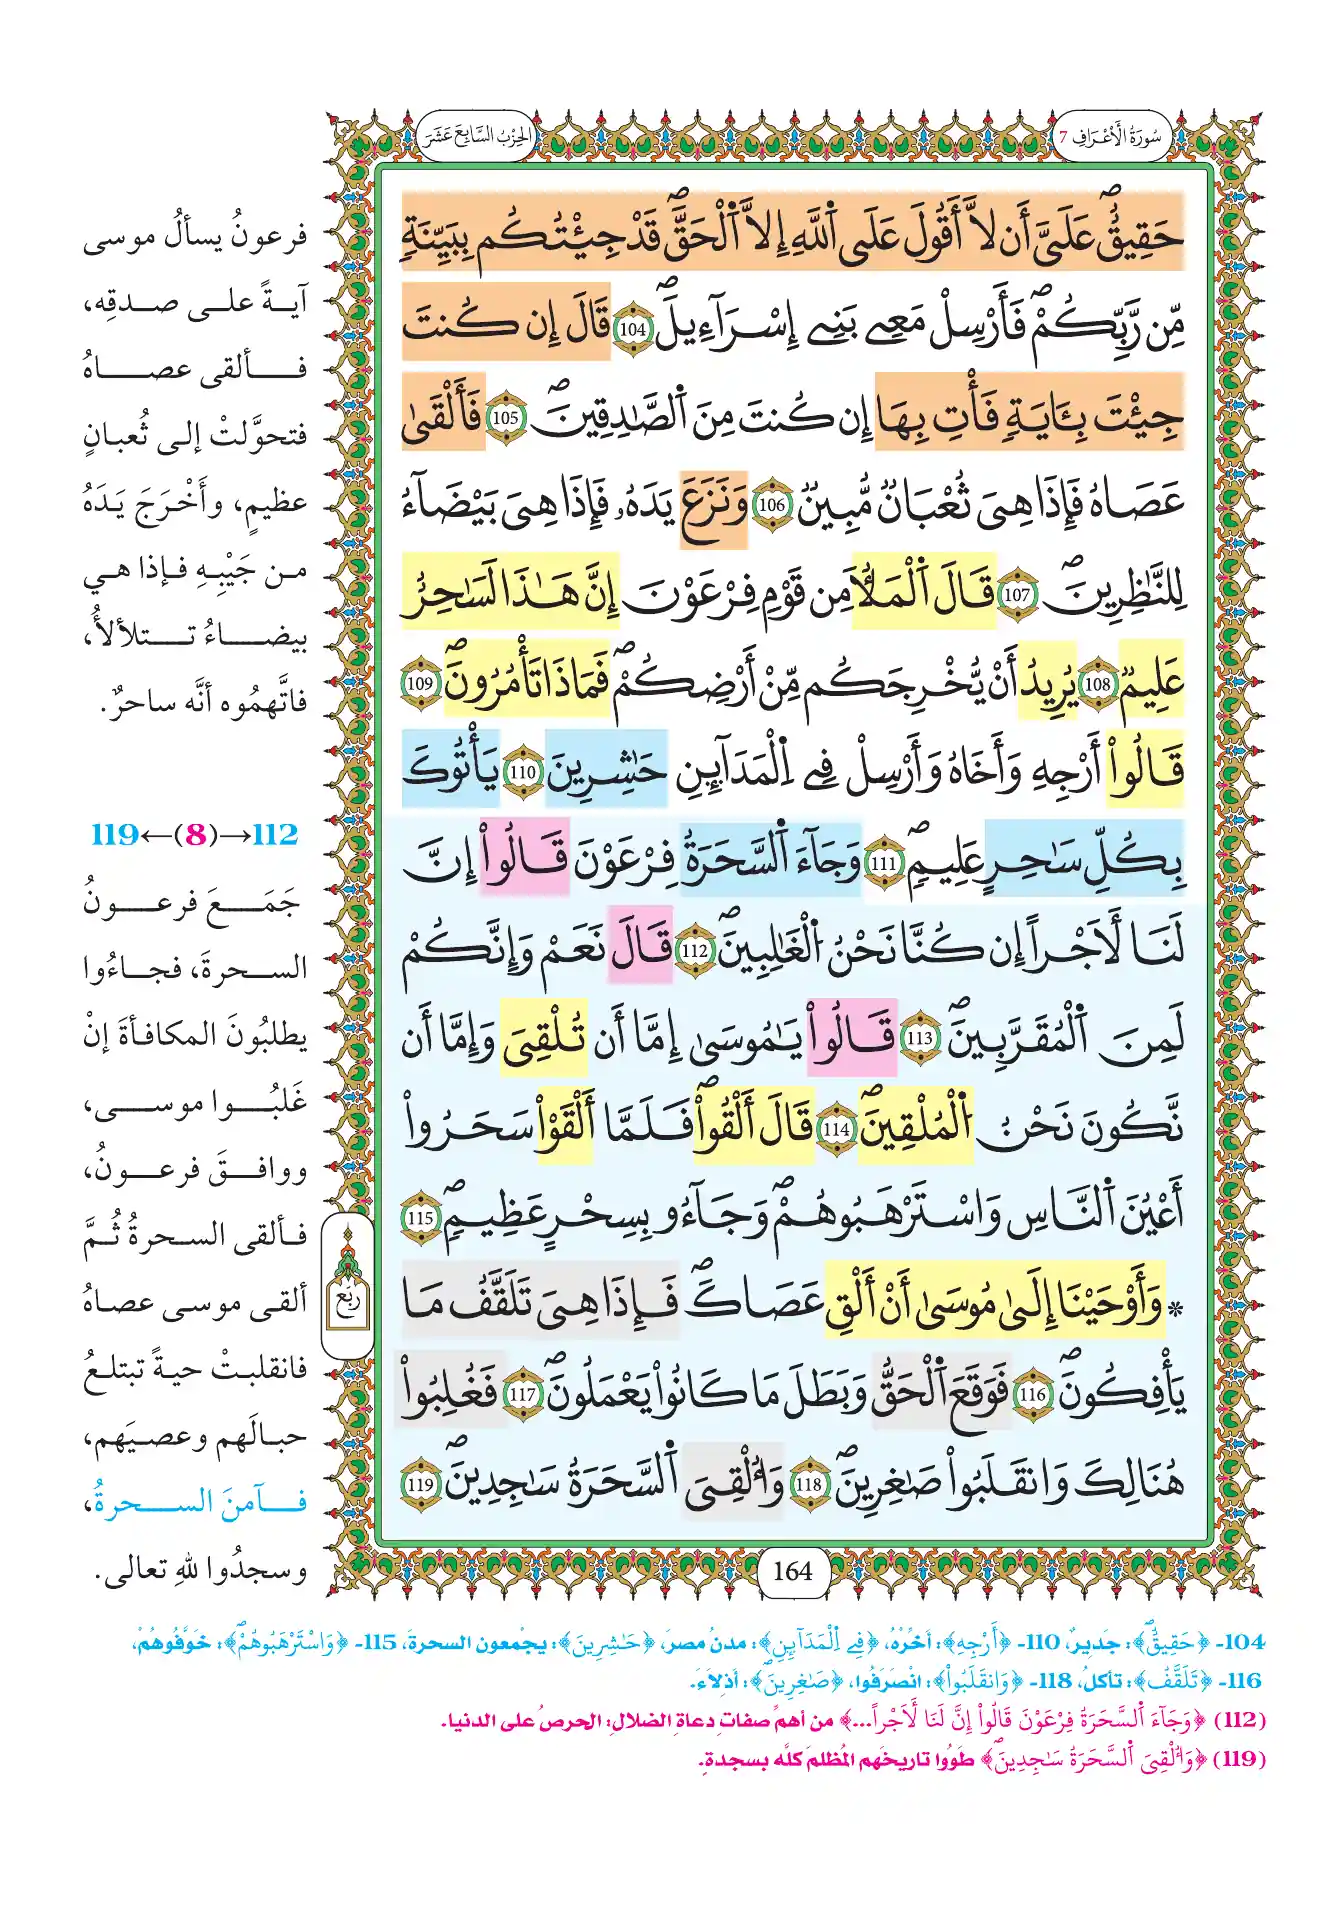 سُورَةُ الْأَعْرَافِ 7
الحِزْبُ السَّابِعَ عَشَرَ
حَقِيقٌ عَلَيَّ أَن لَّا أَقُولَ عَلَى اَللَّهِ إِلَّا اَلْحَقَّ قَدْ جِئْتُكُم بِبَيِّنَةٍ
مِّن رَّبِّكُمْ فَأَرْسِلْ مَعِے بَنِے إِسْرَآءِيلَ 104 قَالَ إِن كُنتَ
جِئْتَ بِـَٔايَةٍ فَأْتِ بِهَا إِن كُنتَ مِنَ اَلصَّٰدِقِينَ 105 فَأَلْقَىٰ
عَصَاهُ فَإِذَا هِيَ ثُعْبَانٌ مُّبِينٌ 106 وَنَزَعَ يَدَهُۥ فَإِذَا هِيَ بَيْضَآءُ
لِلنَّٰظِرِينَ 107 قَالَ اَلْمَلَأُ مِن قَوْمِ فِرْعَوْنَ إِنَّ هَٰذَا لَسَٰحِرٌ
عَلِيمٌ 108 يُرِيدُ أَنْ يُّخْرِجَكُم مِّنْ أَرْضِكُمْ فَمَاذَا تَأْمُرُونَ 109
قَالُواْ أَرْجِهِ وَأَخَاهُ وَأَرْسِلْ فِے اِلْمَدَآئِنِ حَٰشِرِينَ 110 يَأْتُوكَ
بِكُلِّ سَٰحِرٍ عَلِيمٍ 111 وَجَآءَ اَلسَّحَرَةُ فِرْعَوْنَ قَالُواْ إِنَّ
لَنَا لَأَجْراً إِن كُنَّا نَحْنُ اُلْغَٰلِبِينَ 112 قَالَ نَعَمْ وَإِنَّكُمْ
لَمِنَ اَلْمُقَرَّبِينَ 113 قَالُواْ يَٰمُوسَىٰ إِمَّا أَن تُلْقِيَ وَإِمَّا أَن
نَّكُونَ نَحْنُ اُلْمُلْقِينَ 114 قَالَ أَلْقُواْ فَلَمَّا أَلْقَوْاْ سَحَرُواْ
أَعْيُنَ اَلنَّاسِ وَاسْتَرْهَبُوهُمْ وَجَآءُو بِسِحْرٍ عَظِيمٍ 115
* وَأَوْحَيْنَا إِلَىٰ مُوسَىٰ أَنْ أَلْقِ عَصَاكَ فَإِذَا هِيَ تَلَقَّفُ مَا
يَأْفِكُونَ 116 فَوَقَعَ اَلْحَقُّ وَبَطَلَ مَا كَانُواْ يَعْمَلُونَ 117 فَغُلِبُواْ
هُنَالِكَ وَانقَلَبُواْ صَٰغِرِينَ 118 وَأُلْقِيَ اَلسَّحَرَةُ سَٰجِدِينَ 119
ربع
164
فرعونُ يسألُ موسى
آيةً على صدقِه،
فألقى عصاهُ
فتحوَّلتْ إلى ثُعبانٍ
عظيمٍ، وأَخْرَجَ يَدَهُ
من جَيْبِهِ فإذا هي
بيضاءُ تتلألأُ،
فاتَّهمُوه أنَّه ساحرٌ.
119←(8)→112
جَمَعَ فرعونُ
السحرةَ، فجاءُوا
يطلبُونَ المكافأةَ إنْ
غَلبُوا موسى،
ووافقَ فرعونُ،
فألقى السحرةُ ثُمَّ
ألقى موسى عصاهُ
فانقلبتْ حيةً تبتلعُ
حبالَهم وعصيَهم،
فآمنَ السحرةُ،
وسجدُوا للهِ تعالى.
104- ﴿حَقِيقٌ﴾: جَديرٌ، 110- ﴿أَرْجِهِ﴾: أخِّرْهُ، ﴿فِے اِلْمَدَآئِنِ﴾: مدنُ مصرَ، ﴿حَٰشِرِينَ﴾: يجْمعون السحرةَ، 115- ﴿وَاسْتَرْهَبُوهُمْ﴾: خوَّفُوهُمْ،
116- ﴿تَلَقَّفُ﴾: تأكلُ، 118- ﴿وَانقَلَبُواْ﴾: انْصَرَفُوا، ﴿صَٰغِرِينَ﴾: أذِلاءَ.
(112) ﴿وَجَآءَ اَلسَّحَرَةُ فِرْعَوْنَ قَالُواْ إِنَّ لَنَا لَأَجْراً...﴾ من أهمِّ صفاتِ دعاةِ الضلالِ: الحرصُ على الدنيا.
(119) ﴿وَأُلْقِيَ اَلسَّحَرَةُ سَٰجِدِينَ﴾ طوُوا تاريخَهم المُظلمَ كلَّه بسجدةٍ.